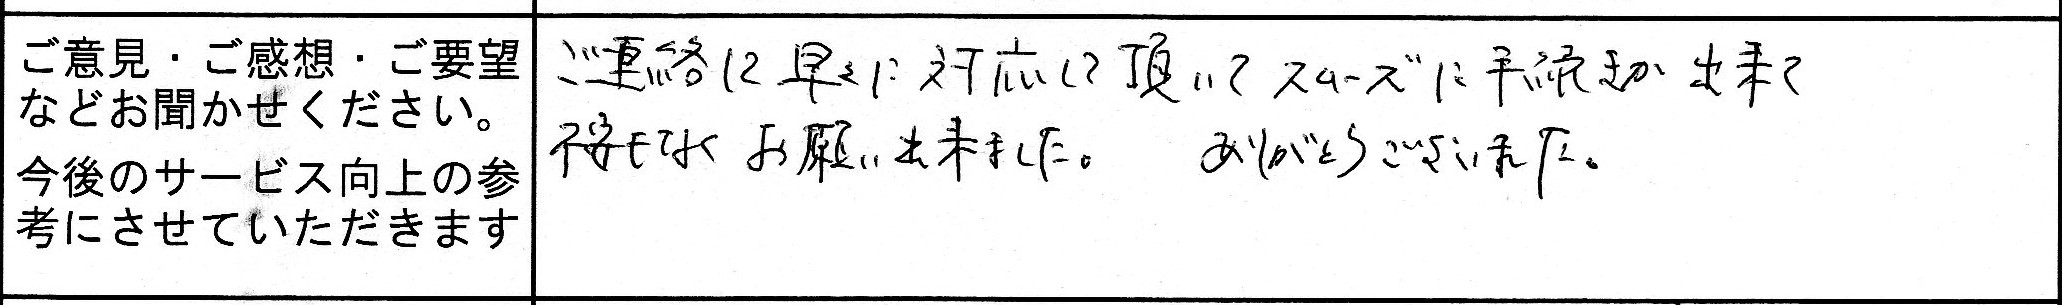 ご意見・ご感想・ご要望
などお聞かせください。
今後のサービス向上の参
考にさせていただきます
ご連絡に早々に対応して頂いてスムーズに手続きが出来て
不安もなくお願い出来ました。 ありがとうございました。